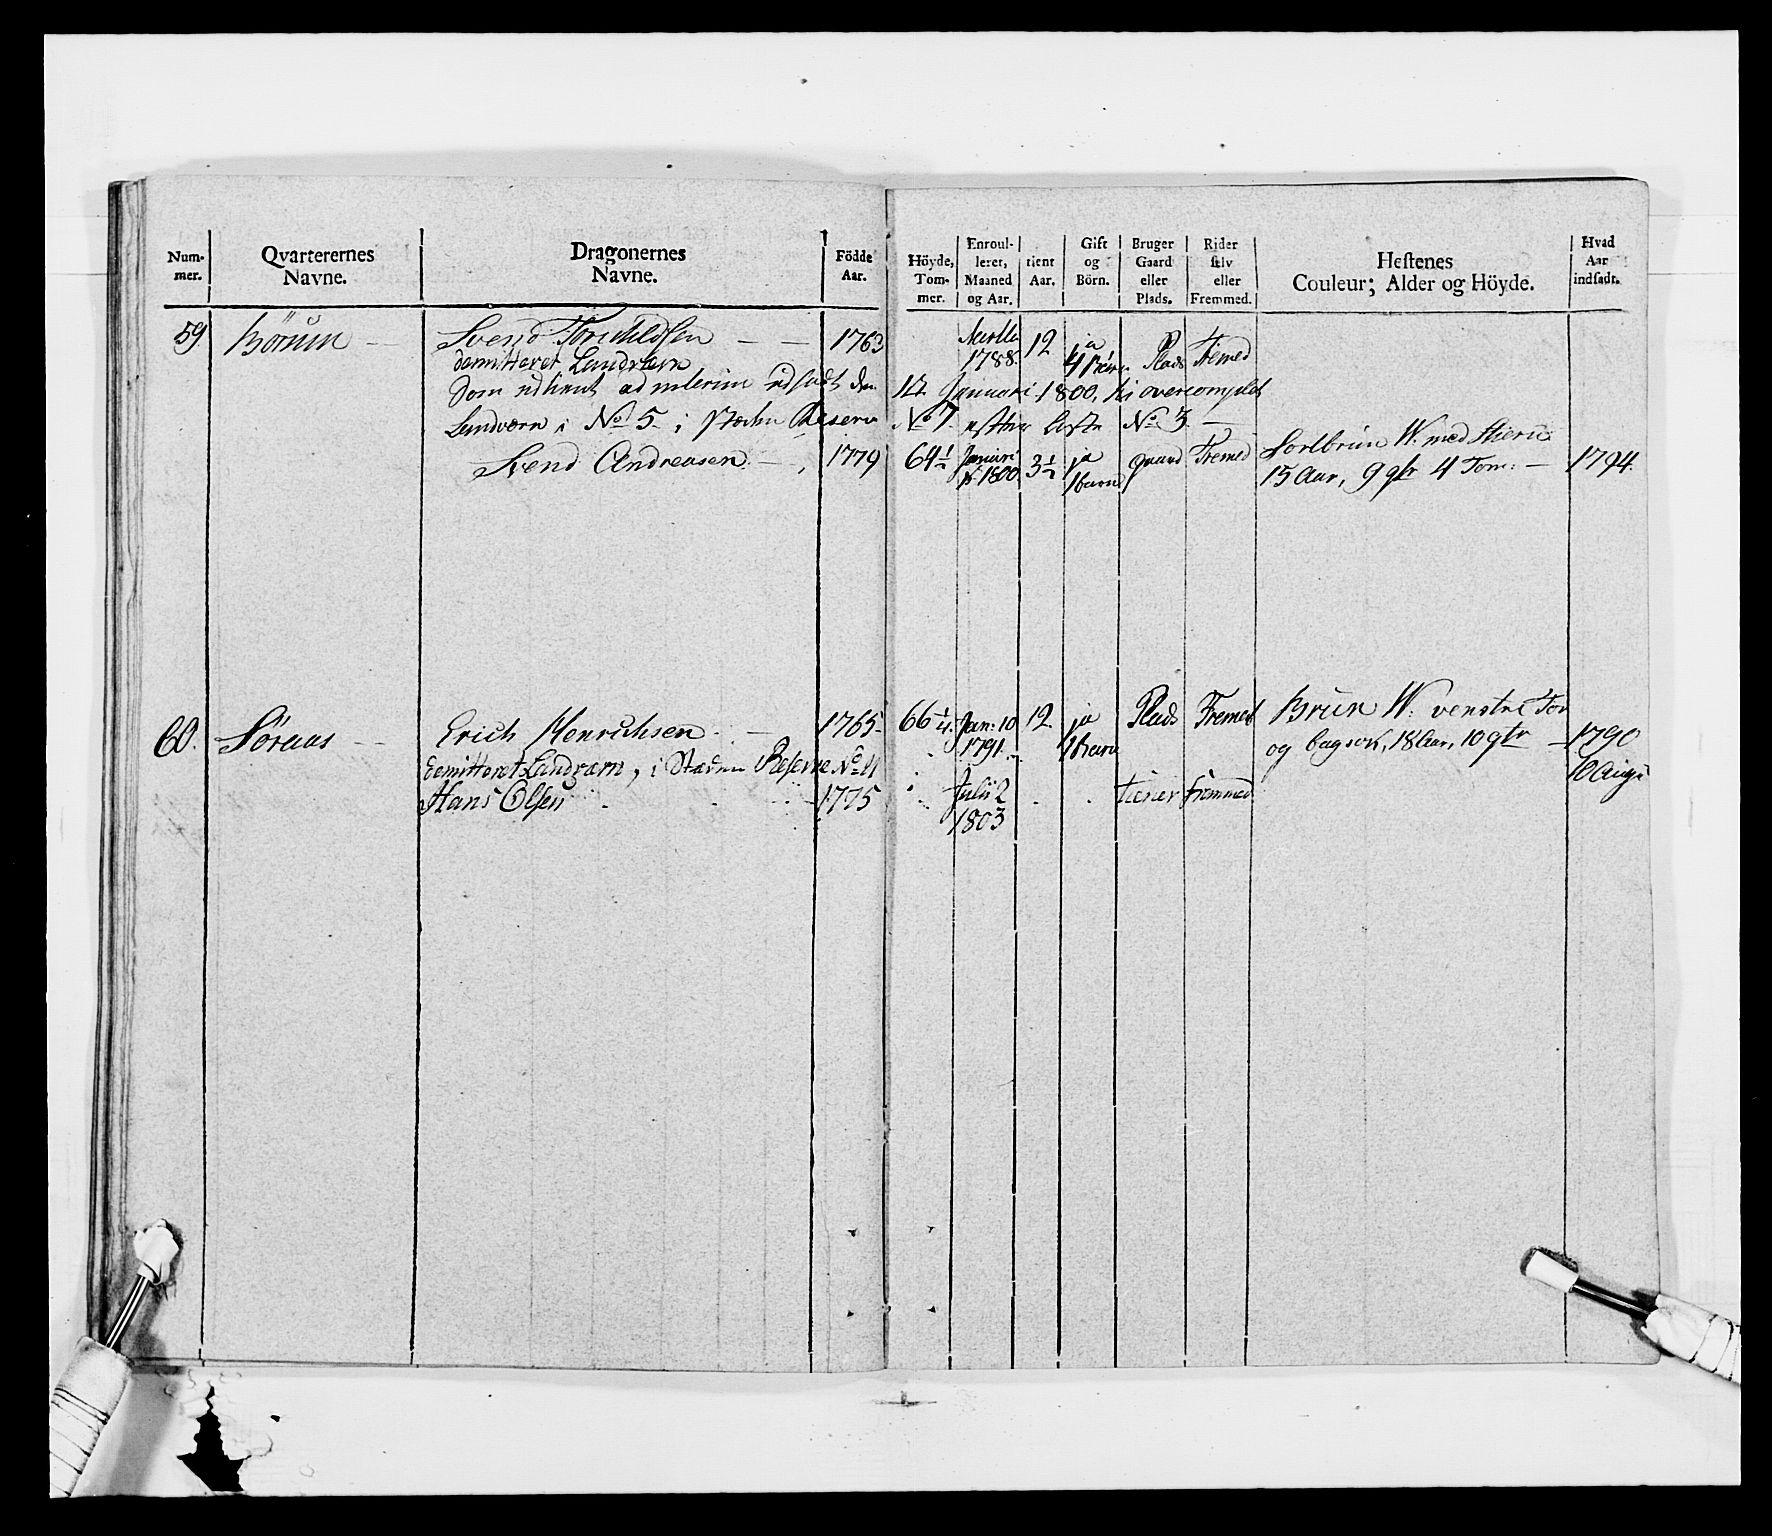 Num-
mer.
Qvarterernes
Navne.
Dragonernes
Navne.
Födde
Aar.
Höyde,
Tom-
mer.
Enroul-
leret,
Maaned
og Aar.
tient
Aar.
Gift
og
Börn.
Bruger
Gaard
eller
Plads.
Rider
selv
eller
Fremmed.
Hestenes
Couleur; Alder og Höyde.
Hvad
Aar
indsadt.
59. Börum — Svend — — 1763 1788. 12 ja Plads Fremed
demitteret Landværn
Som udtient ad interim udsadt den 12 Januari 1800,
Landværn i No 5 i Reserve No 7 efter Liste No 3 —
Svend Andreasen — 1779 64½ Januari 1800. 3½ ja 1 barn gaard Fremed Sortbrun W. med Stierne
15 Aar, 9 qtr 4 Tom: — 1794.
60. Söraas — Erich Henrichsen — 1765 66¼ Jan: 10 1791. 12 ja 1 barn Plads Fremed Brun W: venstre For
og bagsok, 18 Aar, 10 qtr — 1790
demitteret Landværn, i Reserve No 11 10 Aug
Hans Olsen 1775 Julii 2 1803 tiener fremmed